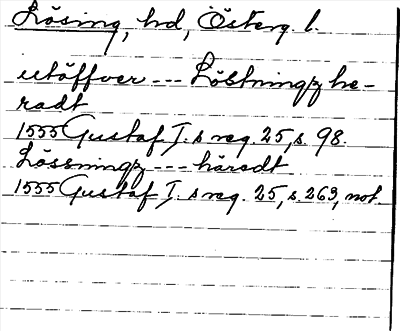 Lösing, hd, Österg. l.
utöffver --- Löstningz he-
radt
1555 Gustaf I. s reg. 25, s. 98.
Lössningz --- häradt
1555 Gustaf I. s reg. 25, s. 263, not.